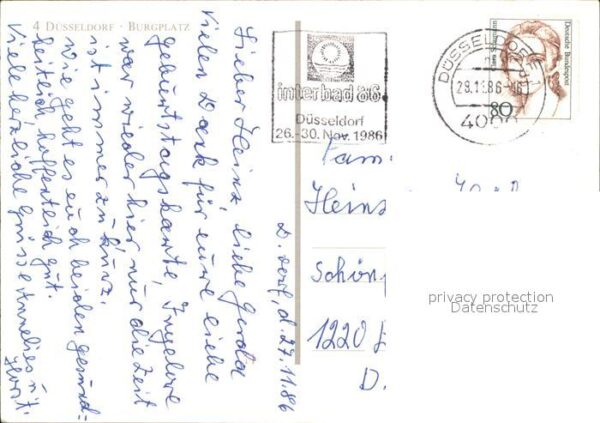 4 DÜSSELDORF · BURGPLATZ
Lieber Heinz, liebe Gerda
Vielen Dank für eure liebe
Geburtstagskarte, Ingelore
war wieder hier nur die Zeit
ist immer zu kurz.
Wie geht es euch beiden gesund-
heitlich, hoffentlich gut.
Viele herzliche Grüsse Annelies u.
Horst.
D. dorf, d. 27.11.86
interbad 86
Düsseldorf
26.-30. Nov. 1986
DÜSSELDORF
28.11.86-16
4000
Deutsche Bundespost
80
Fam.
Heinz
Schön
1220
D.
privacy protection
Datenschutz